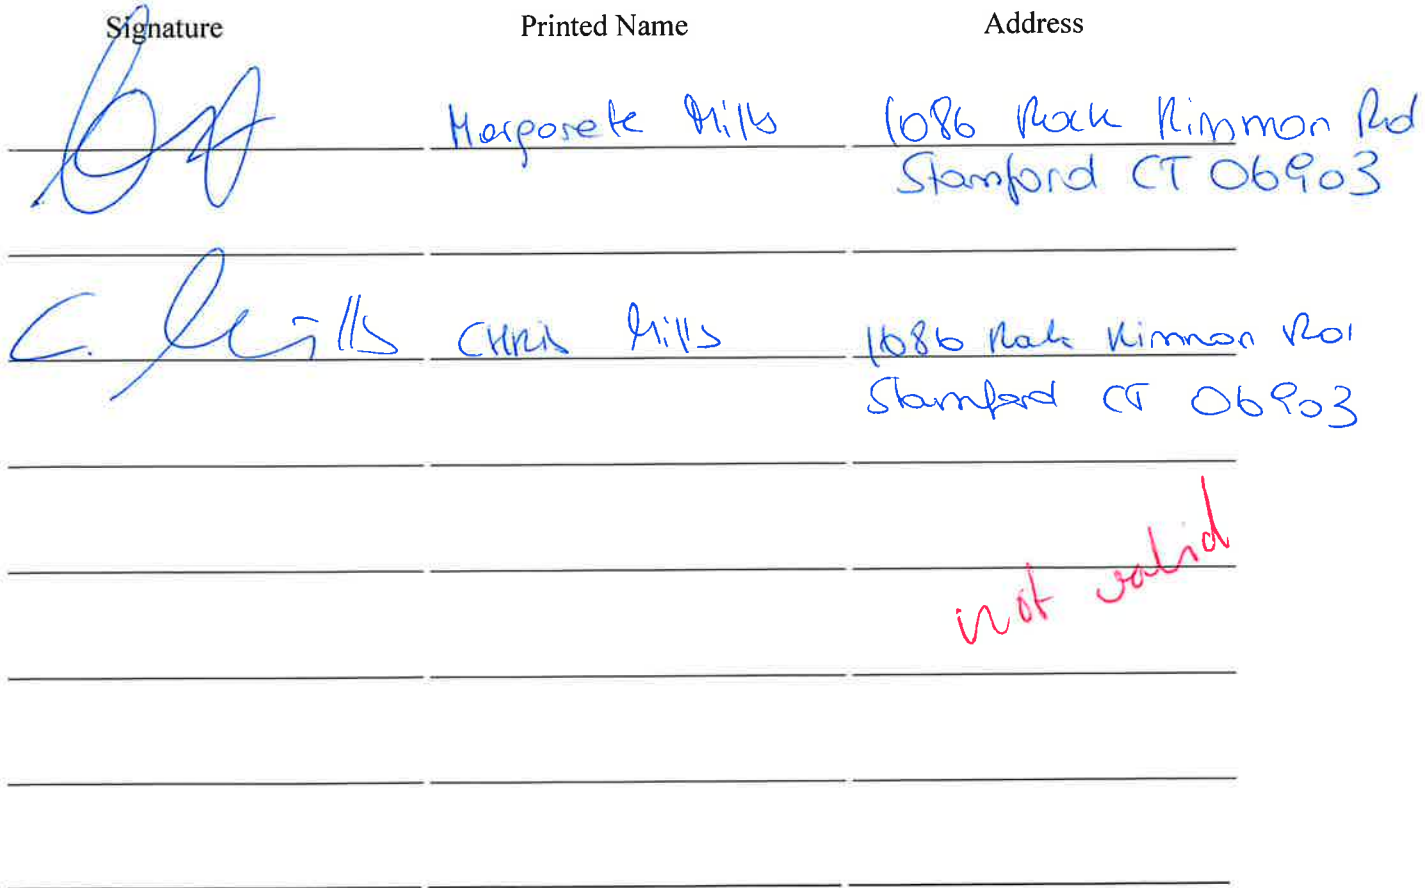 Signature Printed Name Address
Margarete Mills 1086 Rock Rimmon Rd
Stamford CT 06903
C. Mills CHRis Mills 1086 Rock Rimmon Rd
Stamford CT 06903
not valid